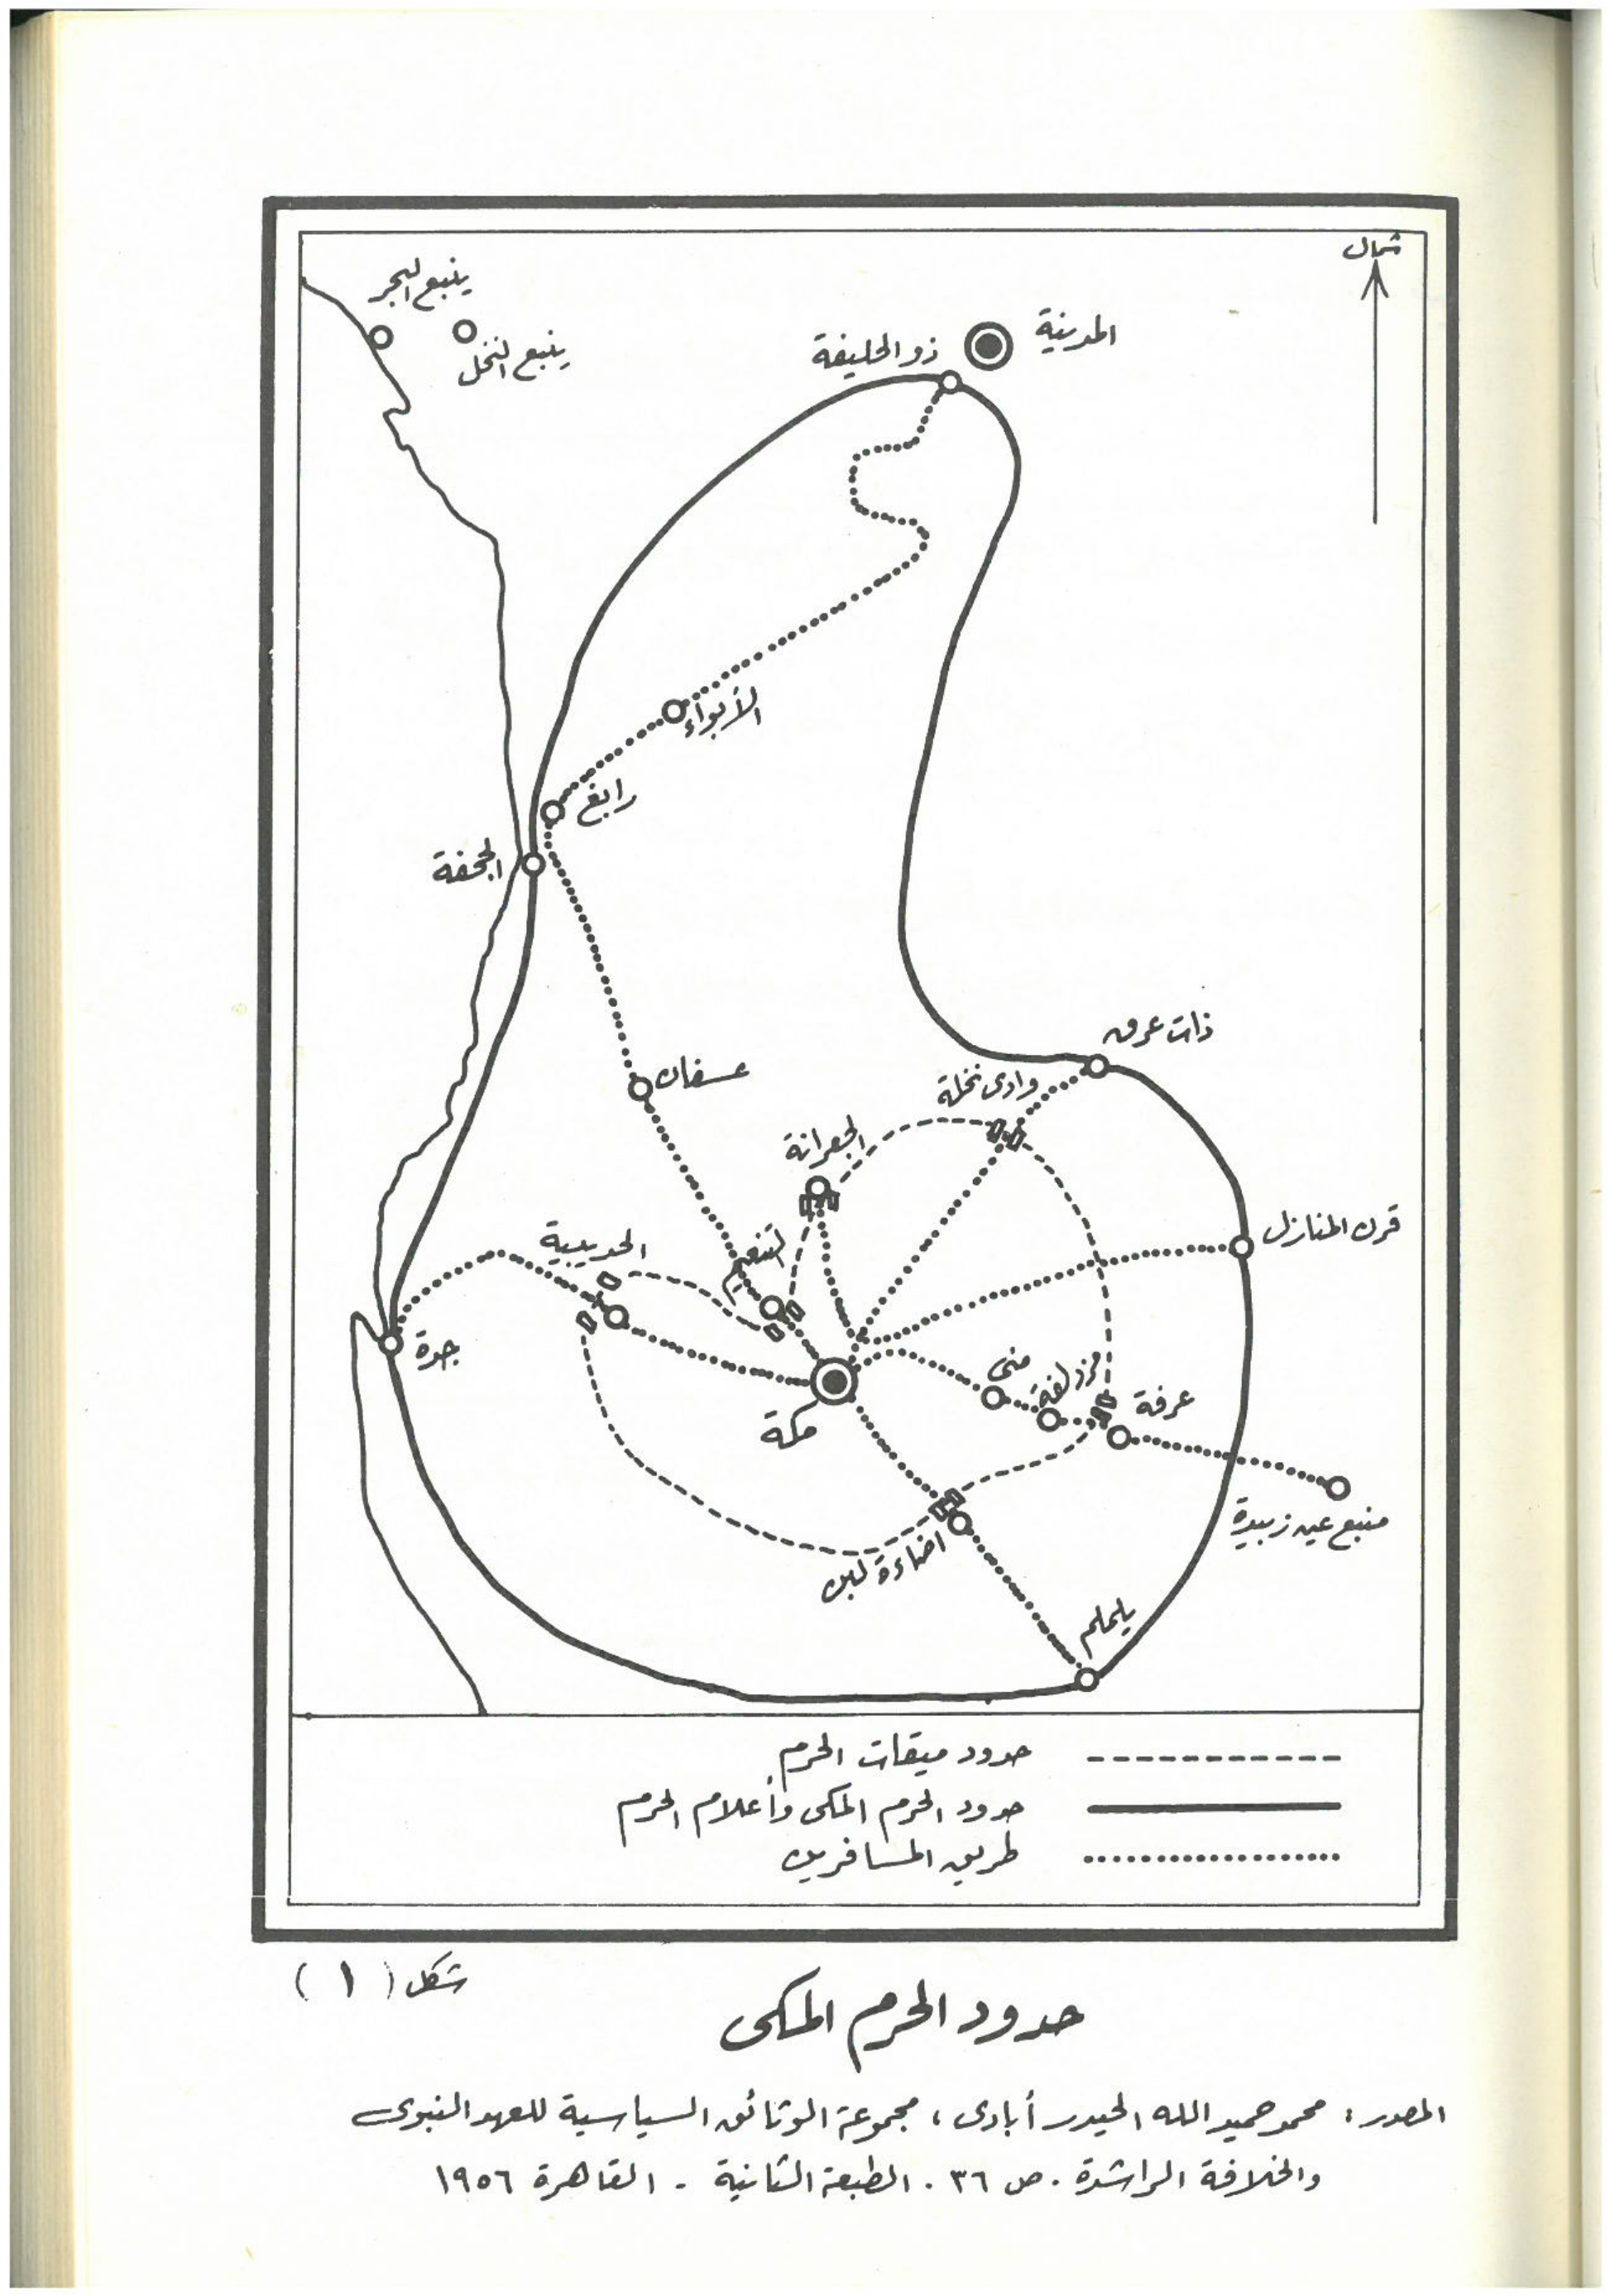 شمال
ينبع البحر
ينبع النخل
المدينة
ذو الحليفة
الأبواء
رابغ
الجحفة
ذات عرق
عسفان
وادى نخلة
الجعرانة
قرن المنازل
التنعيم
الحديبية
جدة
منى
مزدلفة
عرفة
مكة
منبع عين زبيدة
اضاءة لبن
يلملم
حدود ميقات الحرم
حدود الحرم المكى وأعلام الحرم
طريق المسافرين
شكل ( ١ )
حدود الحرم المكى
المصدر : محمد حميد الله الحيدر أبادى ، مجموعة الوثائق السياسية للعهد النبوى
والخلافة الراشدة . ص ٣٦ . الطبعة الثانية - القاهرة ١٩٥٦